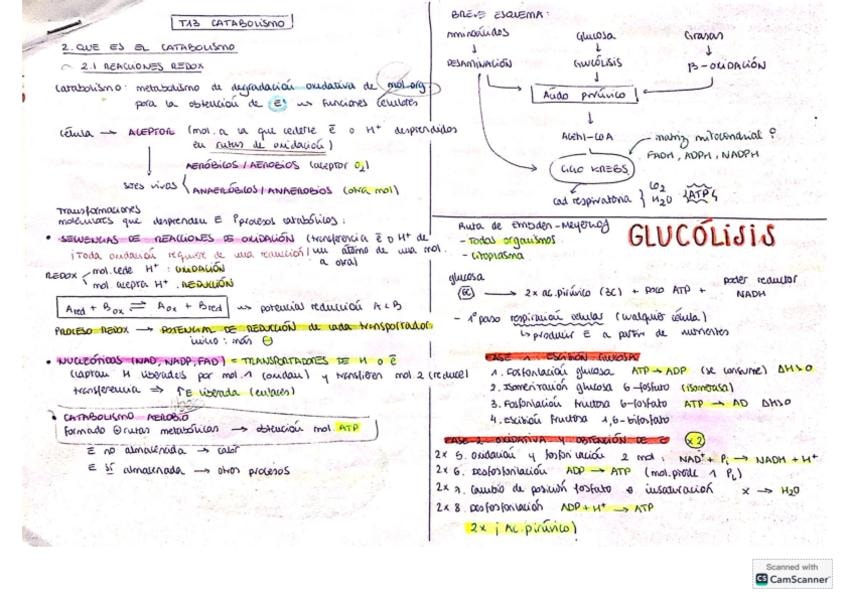 T13 CATABOLISMO
2. QUE ES EL CATABOLISMO
2.1 REACCIONES REDOX
Catabolismo: metabolismo de degradación oxidativa de mol.org
para la obtención de E → funciones celulares
célula → ACEPTOR (mol. a la que cederle ē o H⁺ desprendidos
en rutas de oxidación)
AERÓBICOS / AEROBIOS (aceptor O₂)
seres vivos
ANAERÓBICOS / ANAEROBIOS (otra mol)
Transformaciones
moleculares que desprenden E procesos catabólicos:
• SECUENCIAS DE REACCIONES DE OXIDACIÓN (transferencia ē o H⁺ de
¡Toda oxidación requiere de una reducción! un átomo de una mol.
a otra)
REDOX
mol. cede H⁺: OXIDACIÓN
mol acepta H⁺. REDUCCIÓN
Ared + Box ⇌ Aox + Bred → potencial reducción A < B
PROCESO REDOX → POTENCIAL DE REDUCCIÓN de cada transportador
inicio: más ⊖
• NUCLEÓTIDOS (NAD, NADP, FAD) = TRANSPORTADORES DE H o ē
(captan H liberados por mol. 1 (oxidan) y transfieren mol. 2 (reduce)
transferencia ⇒ ↑E liberada (enlaces)
• CATABOLISMO AEROBIO
formado ⊕ rutas metabólicas → obtención mol. ATP
E no almacenada → calor
E sí almacenada → otros procesos
BREVE ESQUEMA:
aminoácidos Glucosa Grasas
DESAMINACIÓN GLUCÓLISIS β-OXIDACIÓN
Ácido pirúvico
Acetil-CoA
matriz mitocondrial?
FADH, ADPH, NADPH
CICLO KREBS
cad respiratoria } CO₂ H₂O } ATP
Ruta de Embden-Meyerhof
GLUCÓLISIS
- Todos organismos
- citoplasma
glucosa
(6C) → 2x ac. pirúvico (3C) + poco ATP + poder reductor NADH
- 1º paso respiración celular (cualquier célula)
↳ producir E a partir de nutrientes
FASE 1. ESCISIÓN GLUCOSA
1. Fosforilación glucosa ATP → ADP (se consume) ΔH>0
2. Isomerización glucosa 6-fosfato (isomerasa)
3. Fosforilación fructosa 6-fosfato ATP → AD ΔH>0
4. Escisión fructosa 1,6-bifosfato
FASE 2. OXIDATIVA Y OBTENCIÓN DE E x2
2x 5. oxidación y fosforilación 2 mol: NAD⁺ + Pi → NADH + H⁺
2x 6. Desfosforilación ADP → ATP (mol. pierde 1 Pi)
2x 7. Cambio de posición fosfato e insaturación x → H₂O
2x 8. Desfosforilación ADP + H⁺ → ATP
2x ¡ Ac. pirúvico)
Scanned with
CS CamScanner